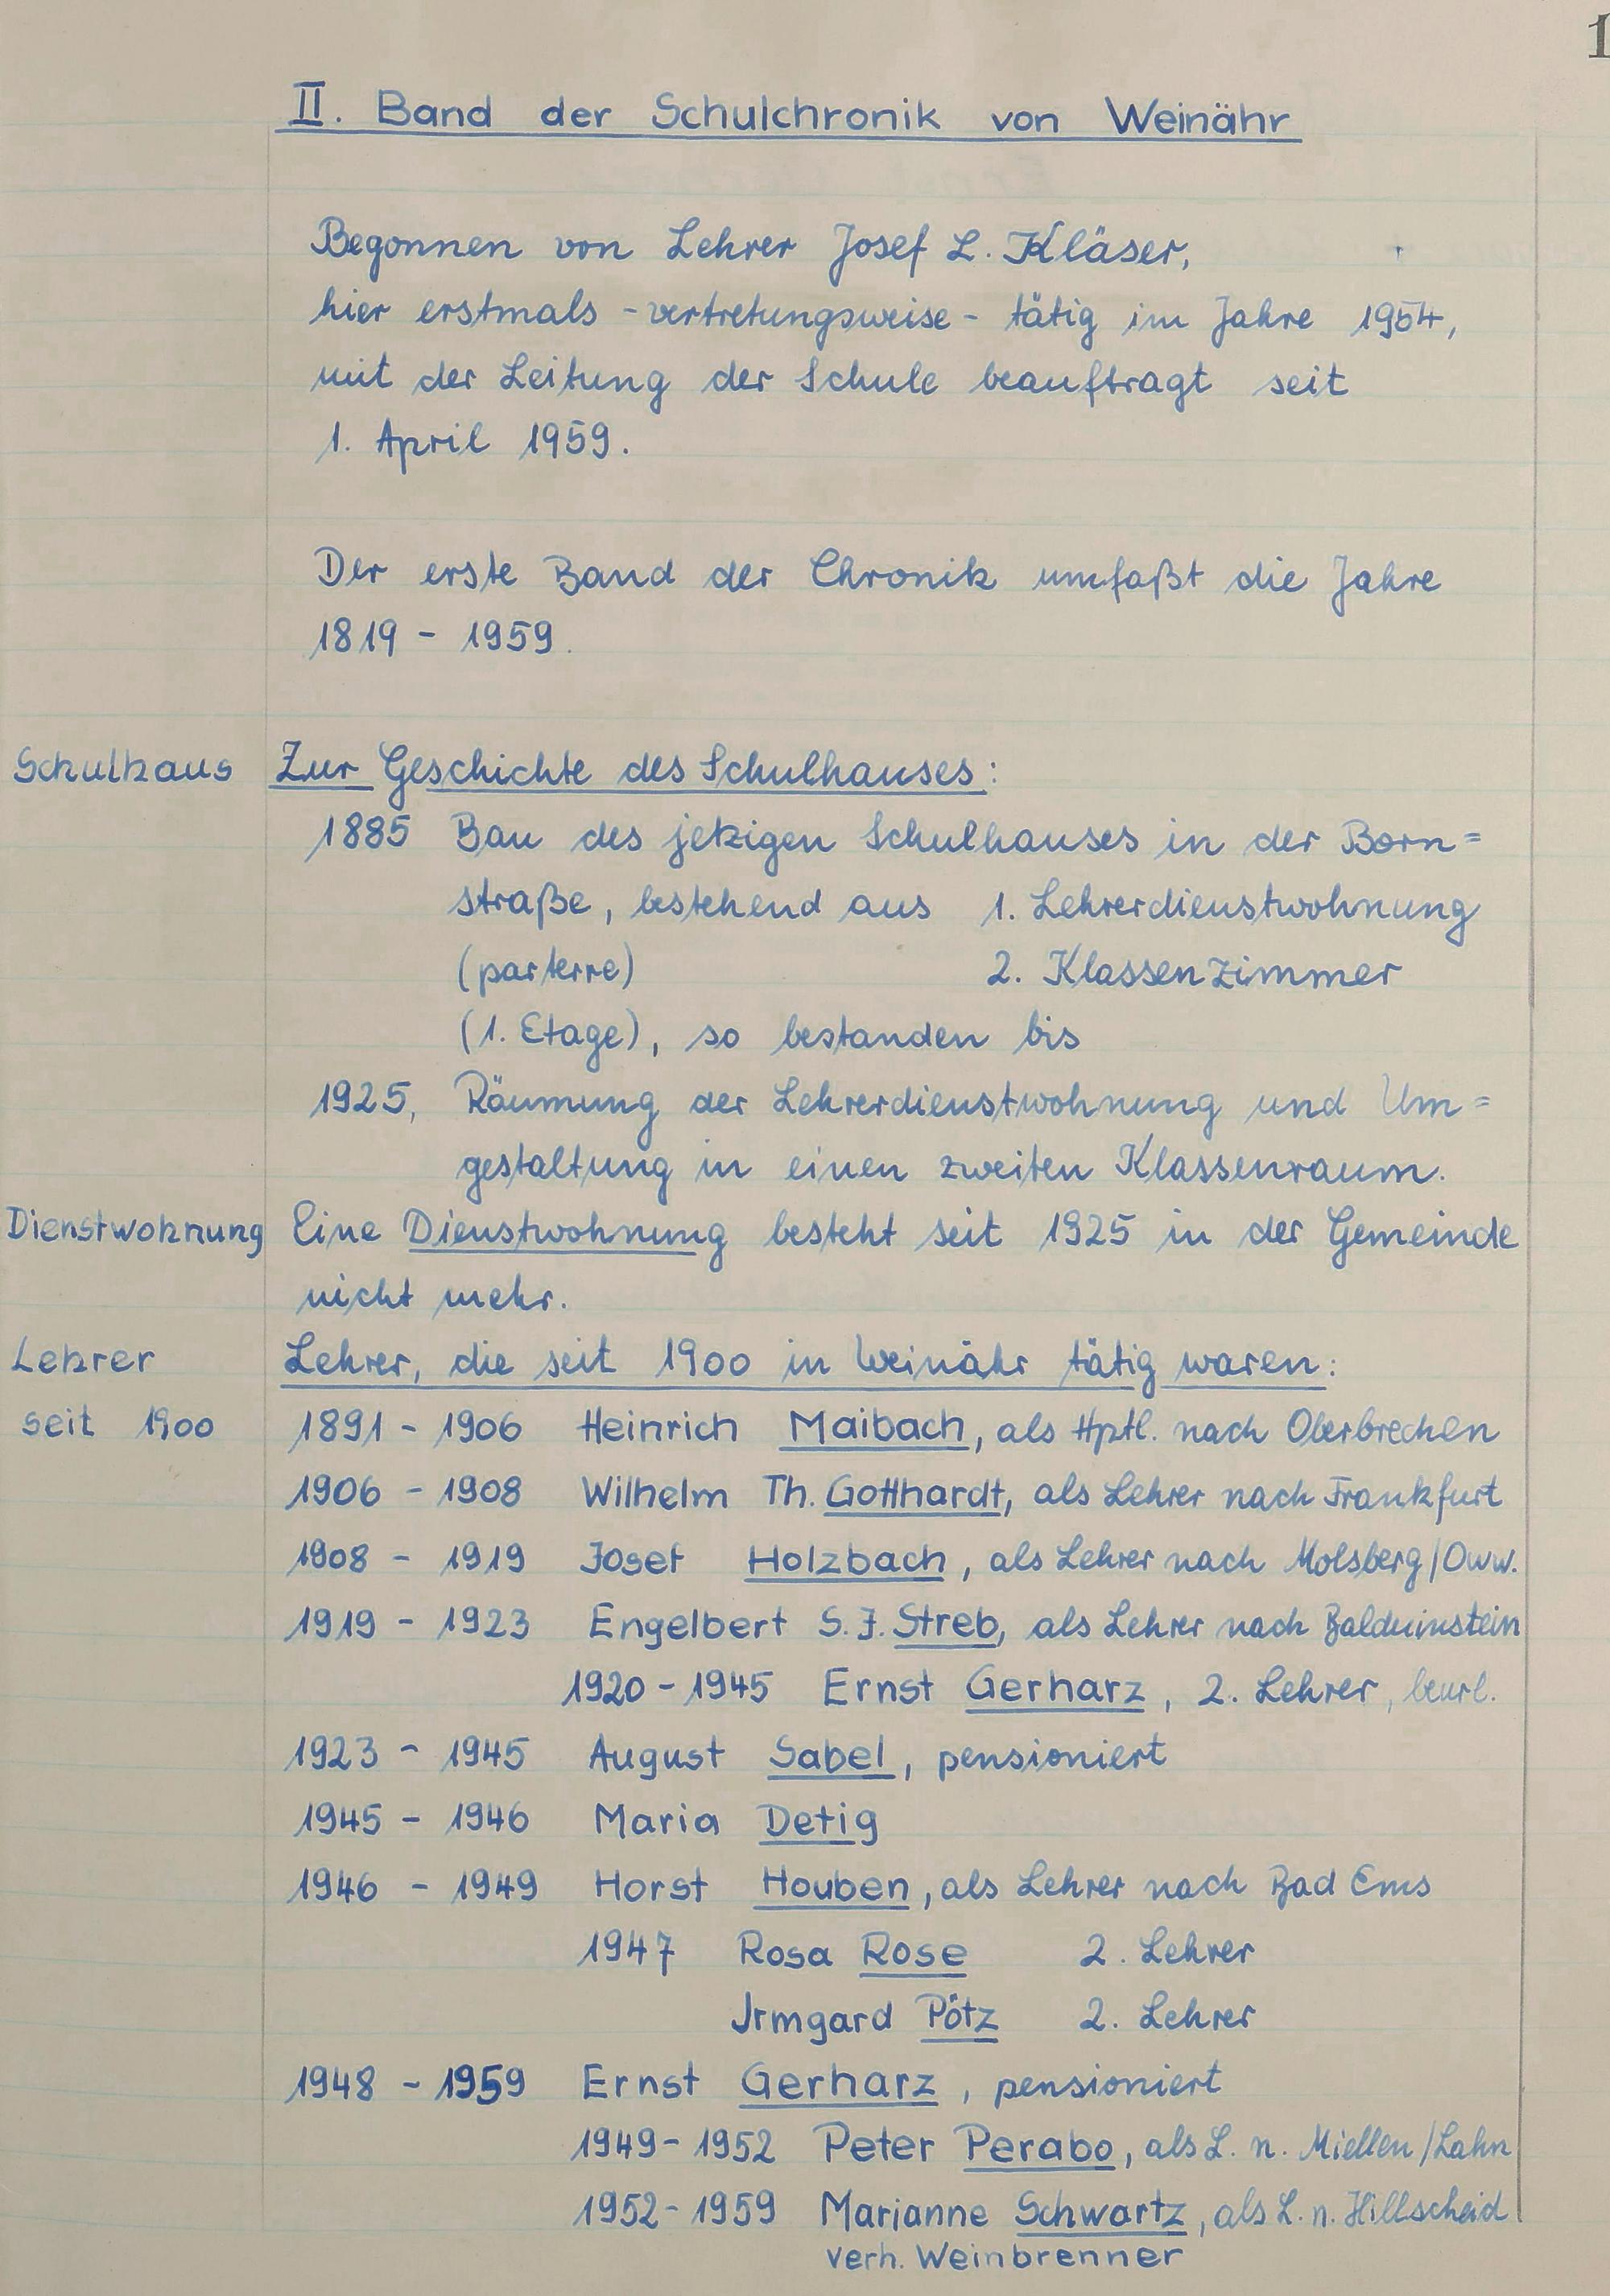 1
II. Band der Schulchronik von Weinähr
Begonnen von Lehrer Josef L. Kläser,
hier erstmals - vertretungsweise - tätig im Jahre 1954,
mit der Leitung der Schule beauftragt seit
1. April 1959.
Der erste Band der Chronik umfaßt die Jahre
1819 - 1959.
Schulhaus Zur Geschichte des Schulhauses:
1885 Bau des jetzigen Schulhauses in der Born=
straße, bestehend aus 1. Lehrerdienstwohnung
(parterre) 2. Klassenzimmer
(1. Etage), so bestanden bis
1925, Räumung der Lehrerdienstwohnung und Um=
gestaltung in einen zweiten Klassenraum.
Dienstwohnung Eine Dienstwohnung besteht seit 1925 in der Gemeinde
nicht mehr.
Lehrer Lehrer, die seit 1900 in Weinähr tätig waren:
seit 1900 1891 - 1906 Heinrich Maibach, als Hptl. nach Oberbrechen
1906 - 1908 Wilhelm Th. Gotthardt, als Lehrer nach Frankfurt
1908 - 1919 Josef Holzbach, als Lehrer nach Molsberg/Oww.
1919 - 1923 Engelbert S. J. Streb, als Lehrer nach Balduinstein
1920 - 1945 Ernst Gerharz, 2. Lehrer, beurl.
1923 - 1945 August Sabel, pensioniert
1945 - 1946 Maria Detig
1946 - 1949 Horst Houben, als Lehrer nach Bad Ems
1947 Rosa Rose 2. Lehrer
Irmgard Pötz 2. Lehrer
1948 - 1959 Ernst Gerharz, pensioniert
1949 - 1952 Peter Perabo, als L. n. Miellen/Lahn
1952 - 1959 Marianne Schwartz, als L. n. Hillscheid
verh. Weinbrenner